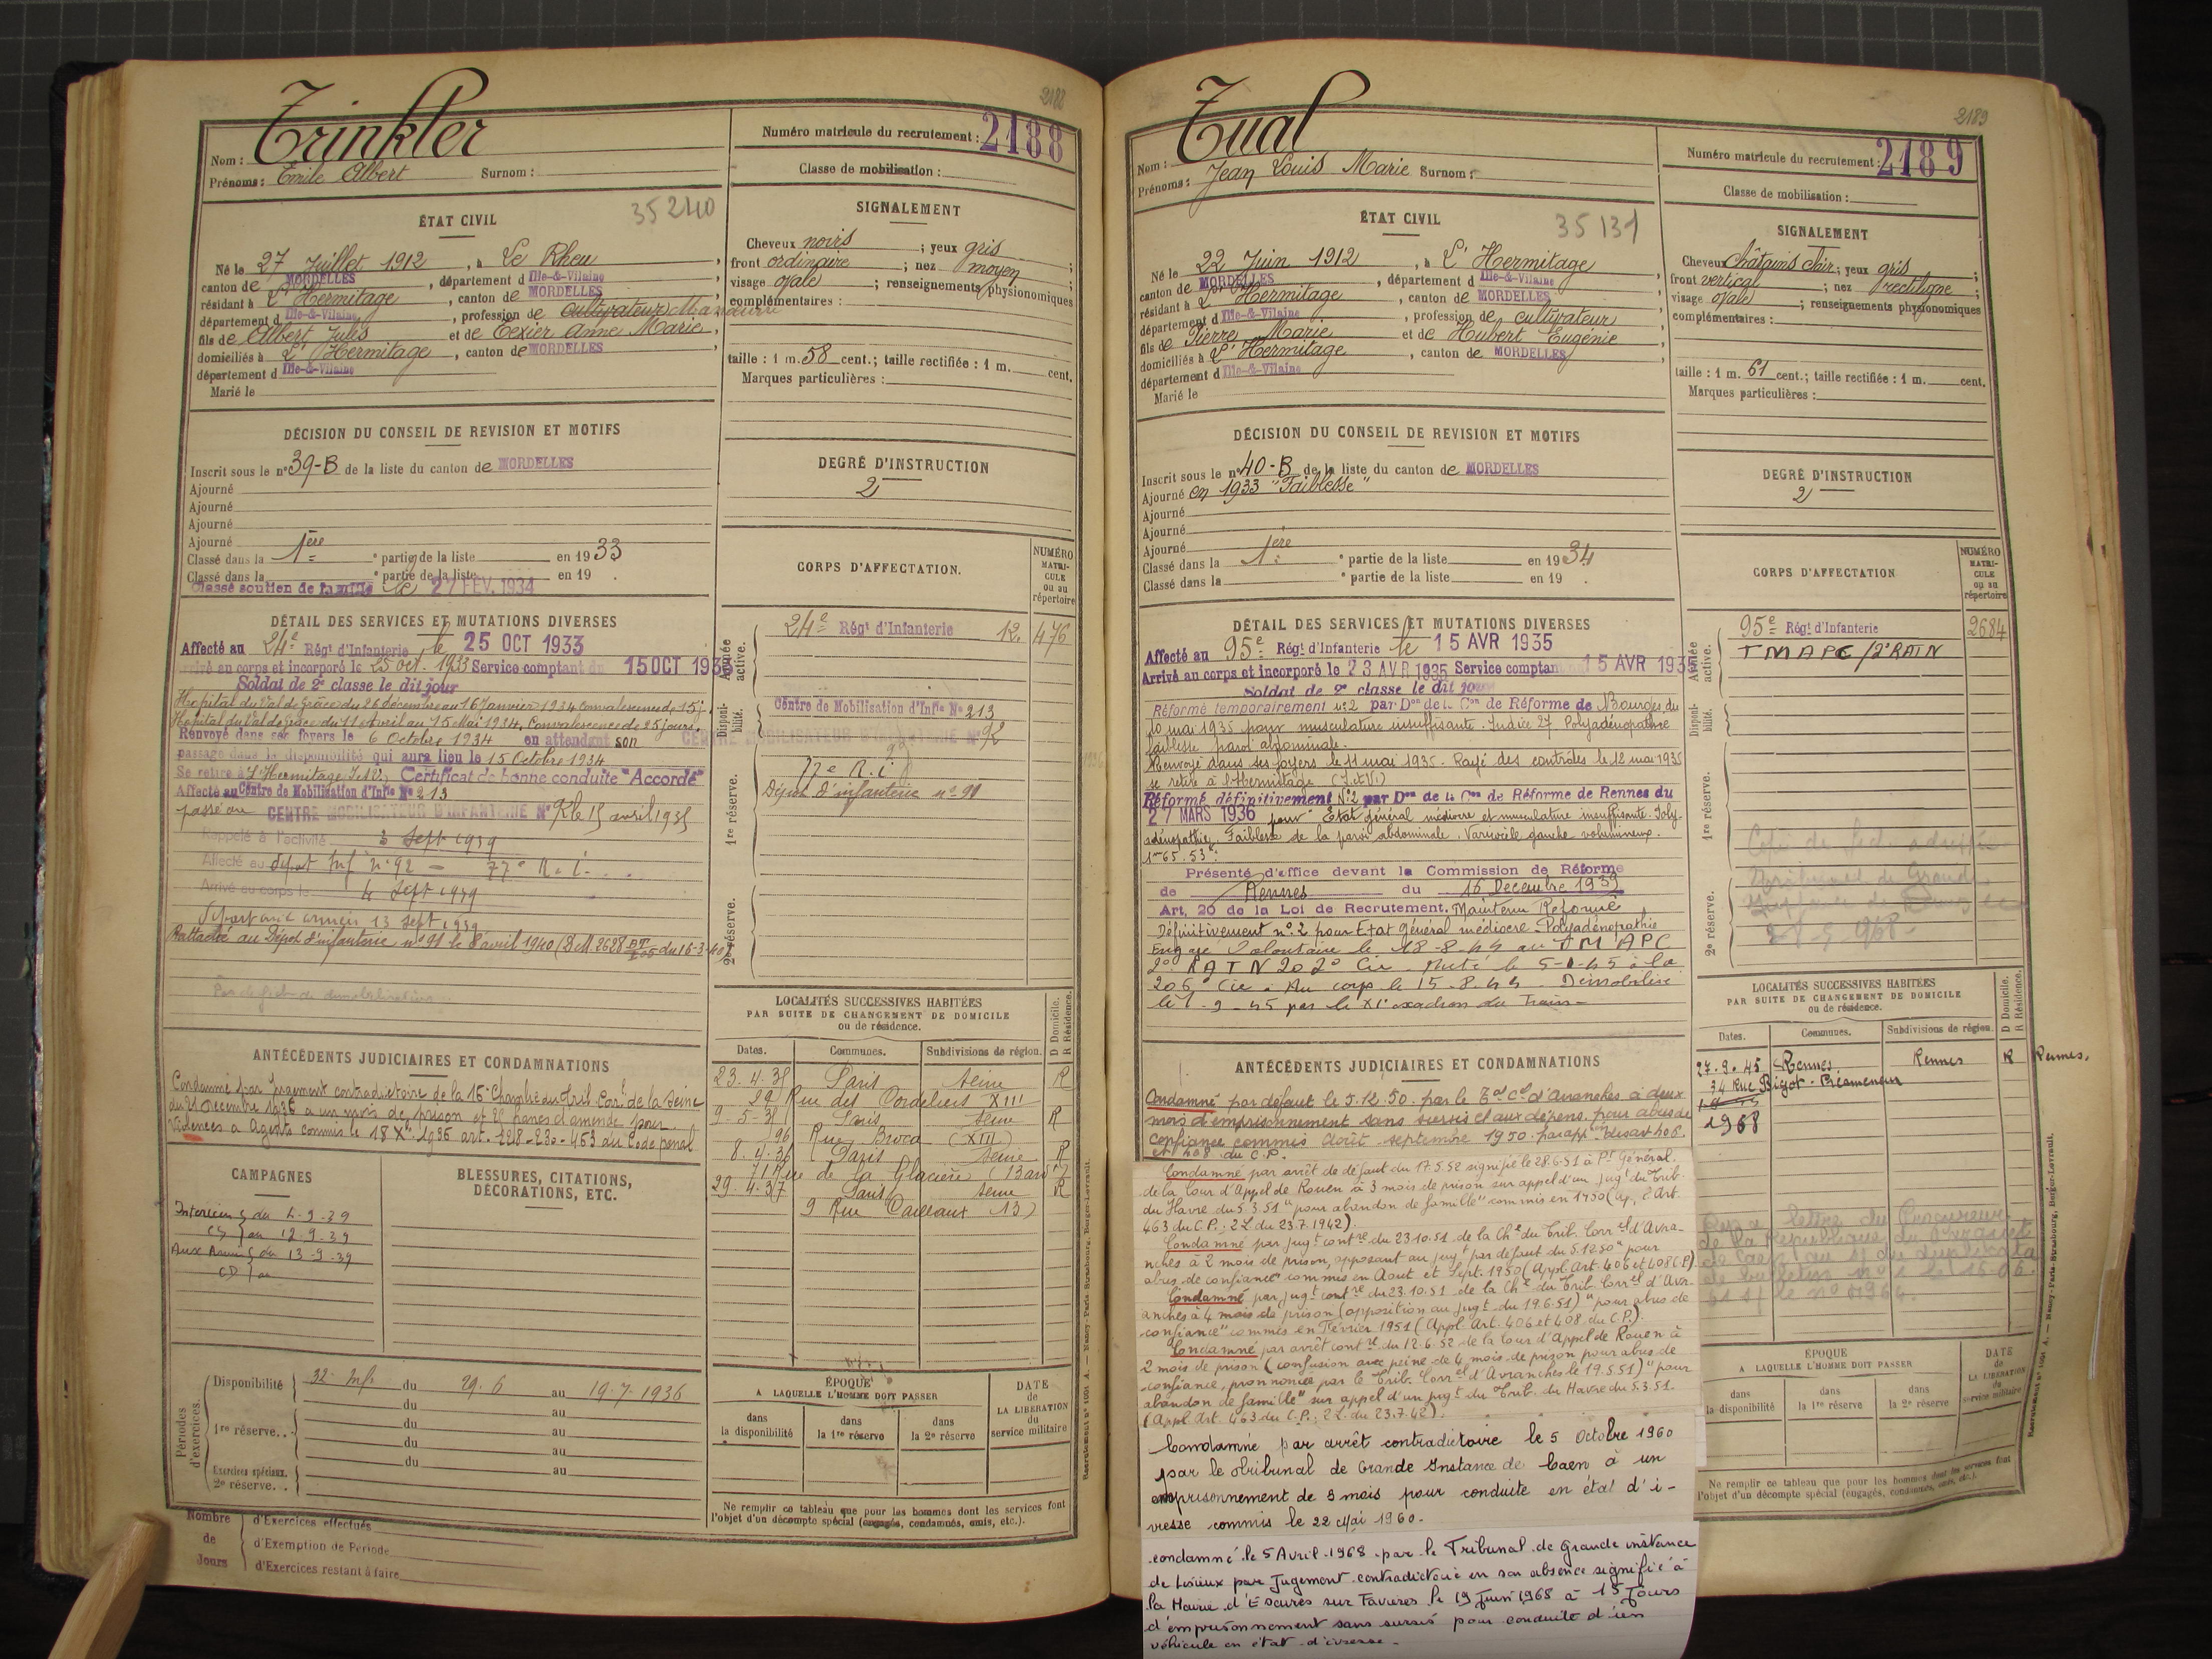 2188
Nom : Trinkler
Prénoms : Emile Albert Surnom :
Numéro matricule du recrutement : 2188
Classe de mobilisation :
ÉTAT CIVIL
35240
Né le 27 Juillet 1912, à Le Rheu,
canton de MORDELLES, département d Ille-&-Vilaine
résidant à L'Hermitage, canton de MORDELLES,
département d Ille-&-Vilaine, profession de cultivateur Manœuvre
fils de Albert Jules et de Texier Anne Marie,
domiciliés à L'Hermitage, canton de MORDELLES,
département d Ille-&-Vilaine
Marié le
SIGNALEMENT
Cheveux noirs ; yeux gris ;
front ordinaire ; nez moyen ;
visage ovale ; renseignements physionomiques
complémentaires :
taille : 1 m. 58 cent.; taille rectifiée : 1 m. cent.
Marques particulières :
DÉCISION DU CONSEIL DE REVISION ET MOTIFS
Inscrit sous le n° 39-B de la liste du canton de MORDELLES
Ajourné
Ajourné
Ajourné
Ajourné
Classé dans la 1ère partie de la liste en 1933
Classé dans la e partie de la liste en 19 .
Classé soutien de famille le 27 FEV. 1934
DEGRÉ D'INSTRUCTION
2
DÉTAIL DES SERVICES ET MUTATIONS DIVERSES
Affecté au 24e Régt d'Infanterie le 25 OCT 1933
Arrivé au corps et incorporé le 25 oct. 1933 Service comptant du 15 OCT 1933
Soldat de 2e classe le dit jour
Hopital du Val de Grâce du 26 décembre au 16 Janvier 1934 convalescence de 15 j.
Hopital du Val de grâce du 11 Avril au 15 Mai 1934. Convalescence de 25 jours.
Renvoyé dans ses foyers le 6 Octobre 1934 en attendant son
passage dans la disponibilité qui aura lieu le 15 Octobre 1934
Se retire à L'Hermitage I.&V. Certificat de bonne conduite "Accordé"
Affecté au Centre de Mobilisation d'Infie N° 213
passé au CENTRE MOBILISATEUR D'INFANTERIE N° 92 le 15 avril 1935
Rappelé à l'activité 3 Sept 1939
Affecté au dépot Inf n° 92 — 77e R.I.
Arrivé au corps le 4 Sept 1939
aux armées 13 sept 1939
Rattaché au Dépot d'infanterie n° 91 le 8 avril 1940 (D.M 2628 du 16-3-40)
Pas de fiche de démobilisation
CORPS D'AFFECTATION.
NUMÉRO MATRICULE ou au répertoire
Armée active.
24e Régt d'Infanterie 12. 476
Disponibilité.
Centre de Mobilisation d'Infie N° 213
CENTRE MOBILISATEUR D'INFANTERIE N° 92
1re réserve.
77e R.i
Dépot d'infanterie n° 91
2e réserve.
ANTÉCÉDENTS JUDICIAIRES ET CONDAMNATIONS
Condamné par Jugement contradictoire de la 16e Chambre du Tril Corel de la Seine
du 21 Décembre 1936 à un mois de prison et 25 francs d'amende pour
Violences à Agents commis le 18 Xbre 1936 art. 228-230-463 du Code pénal
CAMPAGNES
Intérieur du 4-9-39
CS au 12-9-39
Aux Armées du 13-9-39
CD au
BLESSURES, CITATIONS, DÉCORATIONS, ETC.
LOCALITÉS SUCCESSIVES HABITÉES
PAR SUITE DE CHANGEMENT DE DOMICILE
ou de résidence.
Dates. Communes. Subdivisions de région. D Domicile. R Résidence.
23.4.35 Paris Seine R
29 Rue des Cordeliers XIII
9-5-35 Paris Seine R
96 Rue Broca (XIII)
8.4.36 Paris Seine R
71 Rue de la Glacière 13 arrt
29.4.37 Paris Seine R
9 Rue Daillaux 13)
Périodes d'exercices.
Disponibilité 32. Inf. du 29.6 au 19.7.1936
du au
1re réserve.. du au
du au
Exercices spéciaux. 2e réserve.. du au
ÉPOQUE
A LAQUELLE L'HOMME DOIT PASSER
dans la disponibilité
dans la 1re réserve
dans la 2e réserve
DATE de LA LIBÉRATION du service militaire
Ne remplir ce tableau que pour les hommes dont les services font
l'objet d'un décompte spécial (engagés, condamnés, omis, etc.).
Nombre de Jours
d'Exercices effectués
d'Exemption de Période
d'Exercices restant à faire
2189
Nom : Tual
Prénoms : Jean Louis Marie Surnom :
Numéro matricule du recrutement : 2189
Classe de mobilisation :
ÉTAT CIVIL
35131
Né le 22 Juin 1912, à L'Hermitage,
canton de MORDELLES, département d Ille-&-Vilaine
résidant à L'Hermitage, canton de MORDELLES,
département d Ille-&-Vilaine, profession de cultivateur
fils de Pierre Marie et de Hubert Eugénie
domiciliés à L'Hermitage, canton de MORDELLES,
département d Ille-&-Vilaine
Marié le
SIGNALEMENT
Cheveux châtains clair; yeux gris ;
front vertical ; nez rectiligne ;
visage ovale ; renseignements physionomiques
complémentaires :
taille : 1 m. 61 cent.; taille rectifiée : 1 m. cent.
Marques particulières :
DÉCISION DU CONSEIL DE REVISION ET MOTIFS
Inscrit sous le n° 40-B de la liste du canton de MORDELLES
Ajourné en 1933 "Faiblesse"
Ajourné
Ajourné
Ajourné
Classé dans la 1ère partie de la liste en 1934
Classé dans la e partie de la liste en 19 .
DEGRÉ D'INSTRUCTION
2
DÉTAIL DES SERVICES ET MUTATIONS DIVERSES
Affecté au 95e Régt d'Infanterie le 15 AVR 1935
Arrivé au corps et incorporé le 23 AVR 1935 Service comptant 15 AVR 1935
Soldat de 2e classe le dit jour
Réformé temporairement n°2 par Don de la Con de Réforme de Bourges du
10 mai 1935 pour musculature insuffisante. Indice 27. Polyadénopathie
faiblesse paroi abdominale.
Renvoyé dans ses foyers le 11 mai 1935. Rayé des contrôles le 12 mai 1935
se retire à l'Hermitage (I.&V.)
Réformé définitivement N°2 par Don de la Con de Réforme de Rennes du
27 MARS 1936 pour Etat général médiocre et musculature insuffisante. Poly-
adénopathie. Faiblesse de la paroi abdominale. Varicocèle gauche volumineux.
1m65. 53k.
Présenté d'office devant la Commission de Réforme
de Rennes du 16 Decembre 1939
Art. 20 de la Loi de Recrutement. Maintenu Réformé
Définitivement n°2 pour Etat général médiocre - Polyadénopathie
Engagé Volontaire le 18-8-44 au TMAPC
2e RATN 202e Cie. Muté le 5-1-45 à la
206e Cie. Au corps le 15-8-44 - Démobilisé
le 1-9-45 par le XIe escadron du Train-
CORPS D'AFFECTATION
NUMÉRO MATRICULE ou au répertoire
Armée active.
95e Régt d'Infanterie 2684
TMAPC/2e RATN
Disponibilité.
1re réserve.
2e réserve.
Tribunal de Grande
Instance de
28-5-1968.
LOCALITÉS SUCCESSIVES HABITÉES
PAR SUITE DE CHANGEMENT DE DOMICILE
ou de résidence.
Dates. Communes. Subdivisions de région. D Domicile. R Résidence.
27.9.45 Rennes. Rennes R Rennes.
34 Rue Bigot-Préameneu
1968
ANTÉCÉDENTS JUDICIAIRES ET CONDAMNATIONS
Condamné par défaut le 5.12.50 par le Tal Cel d'Avranches à deux
mois d'emprisonnement sans sursis et aux dépens pour abus de
confiance commis Août septembre 1950 par appon des art 406
et 408 du C.P.
Condamné par arrêt de défaut du 17.5.52 signifié le 28.6.51 à Pr Général.
de la Cour d'Appel de Rouen à 3 mois de prison sur appel d'un Jugt du Trib.
du Havre du 5.3.51 "pour abandon de famille" commis en 1950 (Ap. 2 Art.
463 du C.P.; 2 L. du 23.7.1942).
Condamné par jugt contre du 23.10.51 de la Che du Trib. Correl d'Avra-
nches à 2 mois de prison, opposant au jugt par défaut du 5.12.50 "pour
abus de confiance" commis en Aout et Sept. 1950 (Appl. Art. 406 et 408 C.P.)
Condamné par jugt contre du 23.10.51 de la Che du Trib. Correl d'Avr-
anches à 4 mois de prison (opposition au jugt du 19.6.51) "pour abus de
confiance" commis en Février 1951 (Appl. Art. 406 et 408 du C.P.).
Condamné par arrêt contre du 12.6.52 de la Cour d'Appel de Rouen à
2 mois de prison (confusion avec peine de 4 mois de prison pour abus de
confiance, prononcée par le Trib. Correl d'Avranches le 19.5.51) "pour
abandon de famille" sur appel d'un jugt du Trib. du Havre du 5.3.51.
(Appl. Art. 463 du C.P.; 2 L. du 23.7.42).
Condamné par arrêt contradictoire le 5 Octobre 1960
par le Tribunal de Grande Instance de Caen à un
emprisonnement de 3 mois pour conduite en état d'i-
vresse commis le 22 Mai 1960.
condamné le 5 Avril 1968 par le Tribunal de Grande instance
de Lisieux par Jugement contradictoire en son absence signifié à
la Mairie d'Escures sur Favieres le 19 Juin 1968 à 15 Jours
d'emprisonnement sans sursis pour conduite d'un
véhicule en état d'ivresse-
lettre du Procureur
de la République du
de Caen au du duplicata
de bulletin n° 1 le 16-06.
ÉPOQUE
A LAQUELLE L'HOMME DOIT PASSER
dans la disponibilité
dans la 1re réserve
dans la 2e réserve
DATE de LA LIBÉRATION du service militaire
Ne remplir ce tableau que pour les hommes dont les services font
l'objet d'un décompte spécial (engagés, condamnés, omis, etc.).